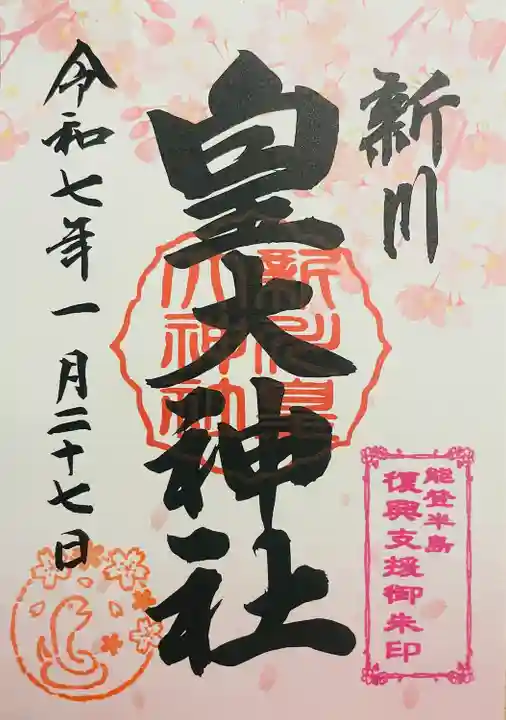 新川
皇大神社
令和七年一月二十七日
能登半島
復興支援御朱印
新川皇
大神社